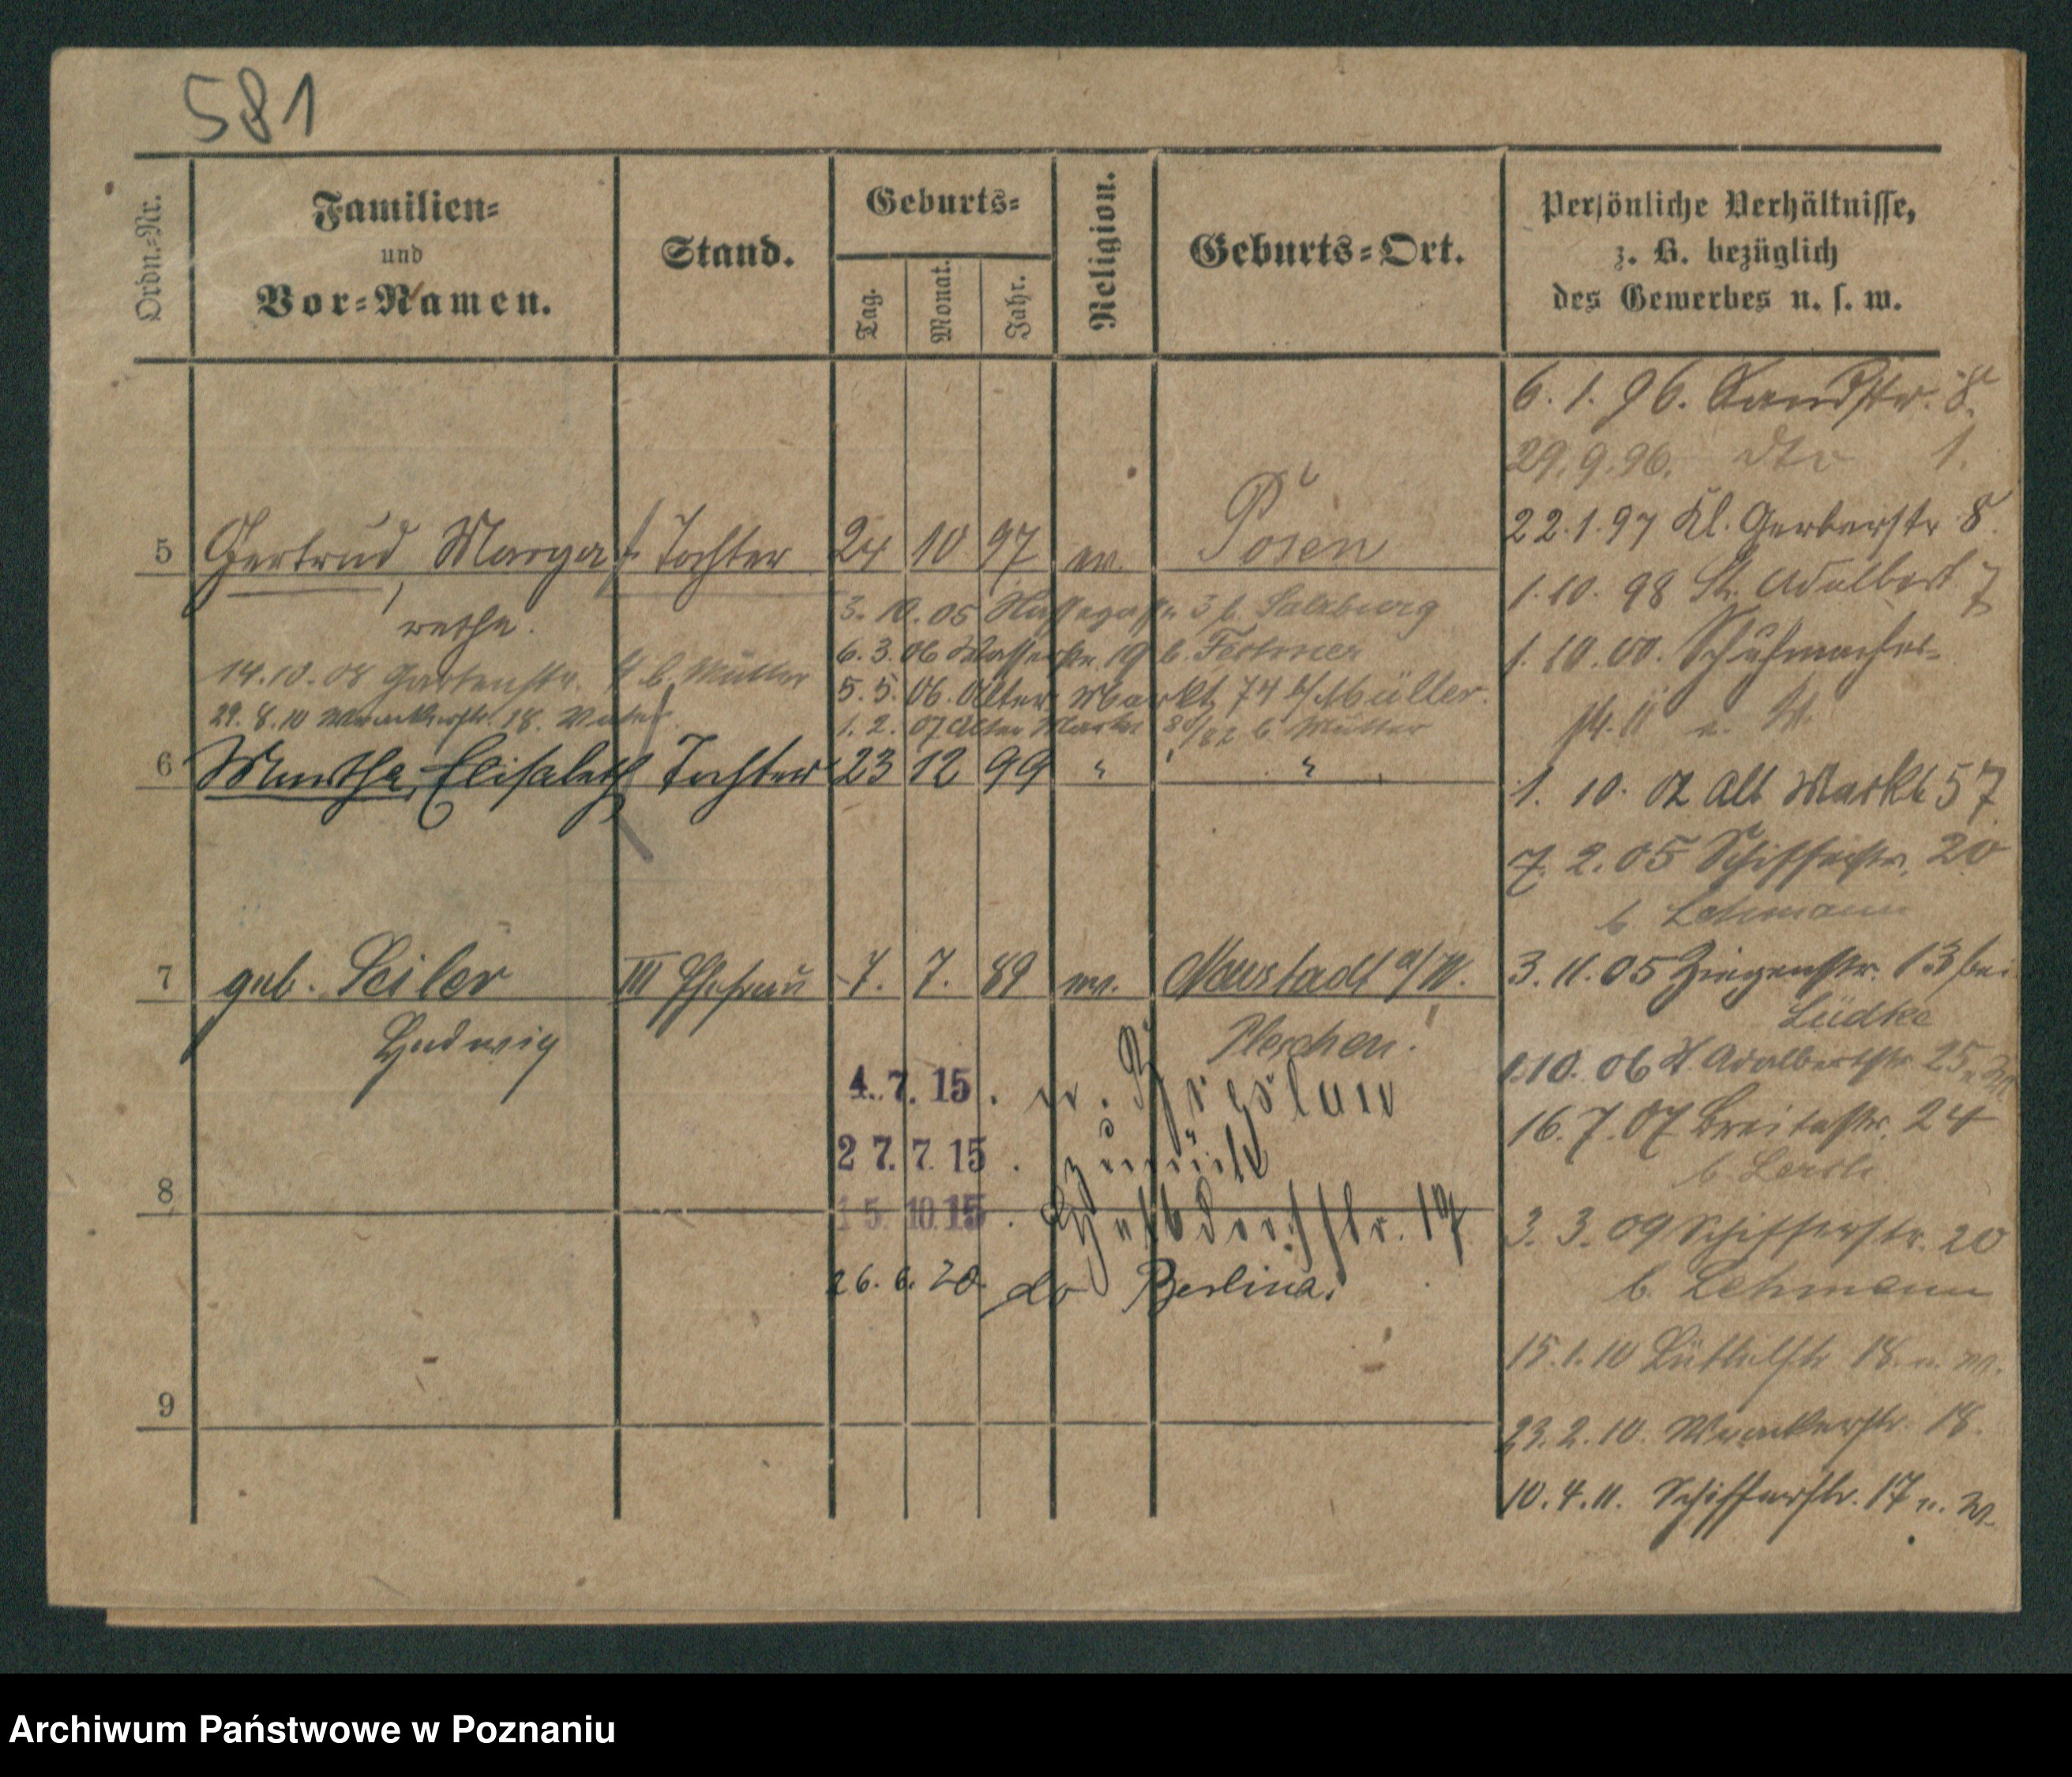 581
Ordn.=Nr.
Familien=
und
Vor=Namen.
Stand.
Geburts=
Tag.
Monat.
Jahr.
Religion.
Geburts=Ort.
Persönliche Verhältnisse,
z. B. bezüglich
des Gewerbes u. s. w.
6. 1. 96. Sandstr. 8.
29. 9. 96. dto 1.
22. 1. 97 Kl. Gerberstr. 8.
5 Gertrud Marga Tochter 24 10 97 ev. Posen
rethe.
1. 10. 98 St. Adalbert 7
3. 10. 05 3 b. Salzburg
1. 10. 00. Schuhmacher-
6. 3. 06 Wasserstr. 19 b. Fertner
14. 10. 08 Gartenstr. b. Müller
5. 5. 06. Alter Markt 74 b/ Müller.
29. 8. 10 18. Vater
1. 2. 07 Alter Markt 81/82 b. Mutter
6 Martha, Elisabeth Tochter 23 12 99 " "
1. 10. 02 Alt Markt 57
7. 2. 05 Schifferstr. 20
b Lehmann
7 geb. Seiler III Ehefrau 7. 7. 89 ev. Neustadt a/W.
Hedwig
Pleschen.
3. 11. 05 Ziegenstr. 13 bei
Lüdke
4. 7. 15. n. Breslau
1. 10. 06 St. Adalbertstr. 25
27. 7. 15. zurück
16. 7. 07 Breitestr. 24
8
15. 10. 15. 17
3. 3. 09 Schifferstr. 20
b. Lehmann
26. 6. 20. do Berlina.
15. 1. 10 18. u. W.
9
23. 2. 10. 18.
10. 4. 11. Schifferstr. 17 u. W.
Archiwum Państwowe w Poznaniu